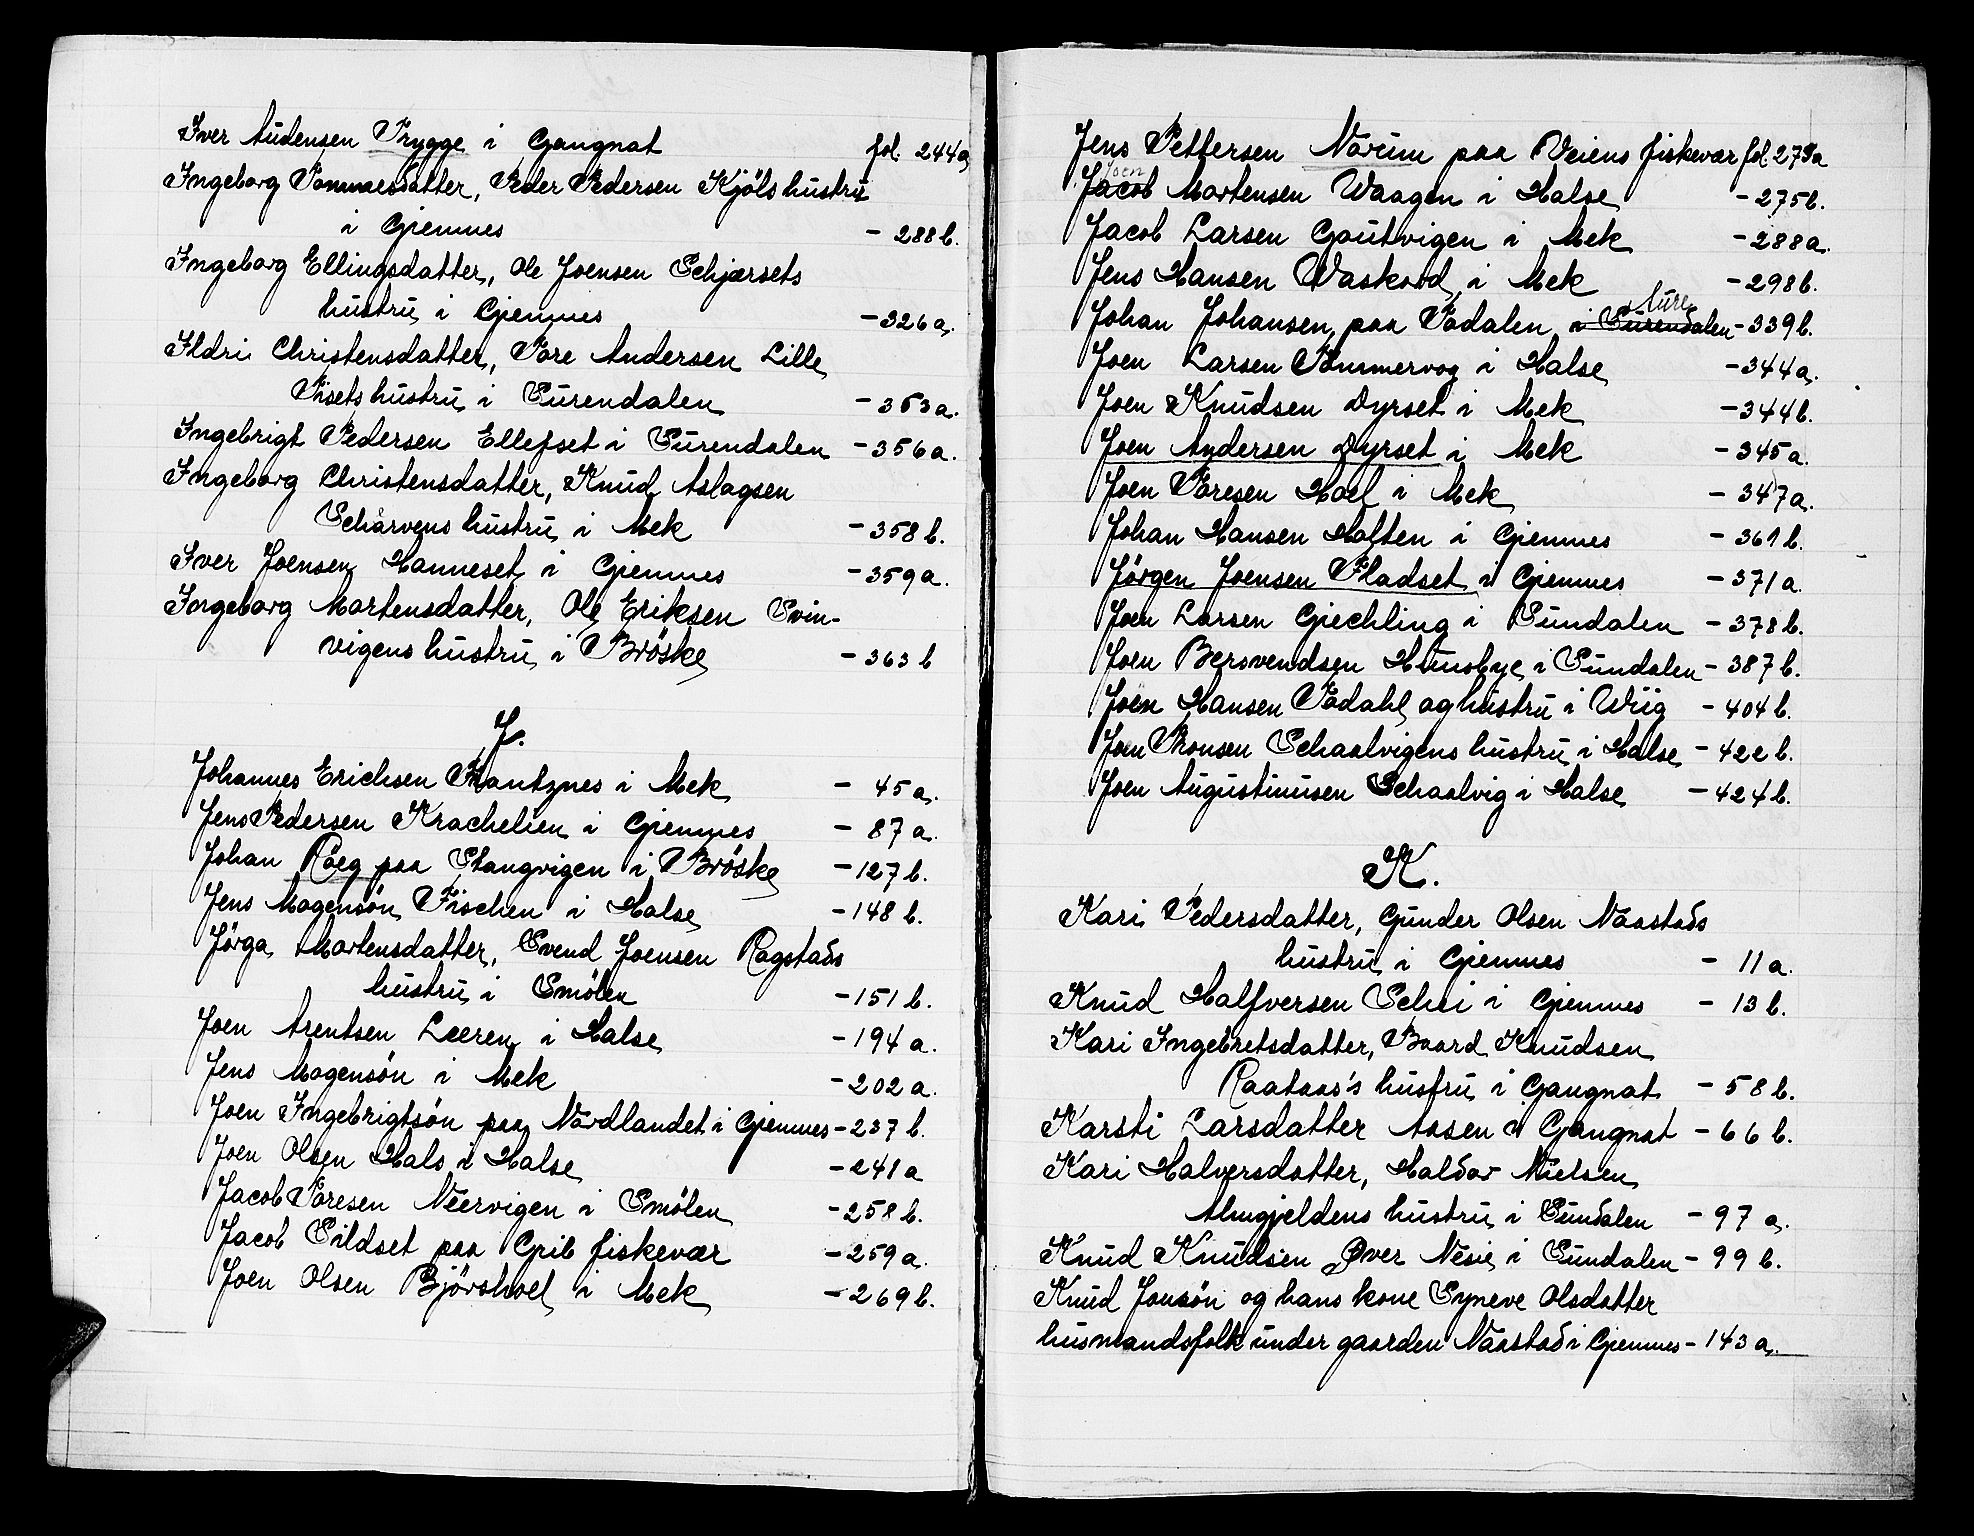 Iver Audensen Trygge i Gangnat fol. 244a
Ingeborg Tommesdatter, Peder Pedersen Kjöls hustru
i Gjemnes - 288b.
Ingeborg Ellingsdatter, Ole Joensen Schjærsets
hustru i Gjemnes - 326a.
Ildri Christensdatter, Tore Andersen Lille
Tisets hustru i Surendalen - 353a.
Ingebrigt Pedersen Ellefset i Surendalen - 356a.
Ingeborg Christensdatter, Knud Aslagsen
Schårvens hustru i Mek - 358b.
Iver Joensen Hanneset i Gjemnes - 359a.
Ingeborg Mortensdatter, Ole Eriksen Svin-
vigens hustru i Bröske - 363b
J.
Johannes Erichsen Frantznes i Mek - 45a.
Jens Pedersen Krachelien i Gjemnes - 87a.
Johan Röeg paa Stangvigen i Bröske - 127b.
Jens Mogensön Fischen i Halse - 148b.
Jörga Mortensdatter, Svend Joensen Rogstads
hustru i Smölen - 151b.
Joen Arentsen Leeren i Halse - 194a.
Jens Mogensön i Mek - 202a.
Joen Ingebrigtsön paa Nordlandet i Gjemnes - 237b.
Joen Olsen Hals i Halse - 241a
Jacob Toresen Neervigen i Smölen - 258b.
Jacob Sildset paa Grib fiskevær - 259a.
Joen Olsen Björshoel i Mek - 269b.
Jens Pettersen Norum paa Veiens fiskevær fol. 273a
Joen
Jacob Mortensen Waagen i Halse - 275b.
Jacob Larsen Gautvigen i Mek - 288a.
Jens Hansen Waskord i Mek - 298b.
Aure
Johan Johansen paa Todalen i Surendalen - 339b.
Joen Larsen Tömmervog i Halse - 344a.
Joen Knudsen Dyrset i Mek - 344b.
Joen Andersen Dyrset i Mek - 345a.
Joen Toresen Hoel i Mek - 347a.
Johan Hansen Haften i Gjemnes - 361b.
Jörgen Joensen Fladset i Gjemnes - 371a.
Joen Larsen Gjechling i Sundalen - 378b.
Joen Bersvendsen Hunsbye i Sundalen - 387b.
Joen Hansen Todahl og hustru i Wiig - 404b.
Joen Tronsen Schaalvigens hustru i Halse - 422b.
Joen Augustinusen Schaalvig i Halse - 424b.
K.
Kari Pedersdatter, Gunder Olsen Naastads
hustru i Gjemnes - 11a.
Knud Halfversen Schei i Gjemnes - 13b.
Kari Ingebretsdatter, Baard Knudsen
Raataas's hustru i Gangnat - 58b.
Karsti Larsdatter Aasen i Gangnat - 66b.
Kari Halversdatter, Haldor Nielsen
Almgjeldens hustru i Sundalen - 97a.
Knud Knudsen Over Nesie i Sundalen - 99b.
Knud Jonsön og hans kone Synneve Olsdatter
husmandsfolk under gaarden Naastad i Gjemnes - 143a.